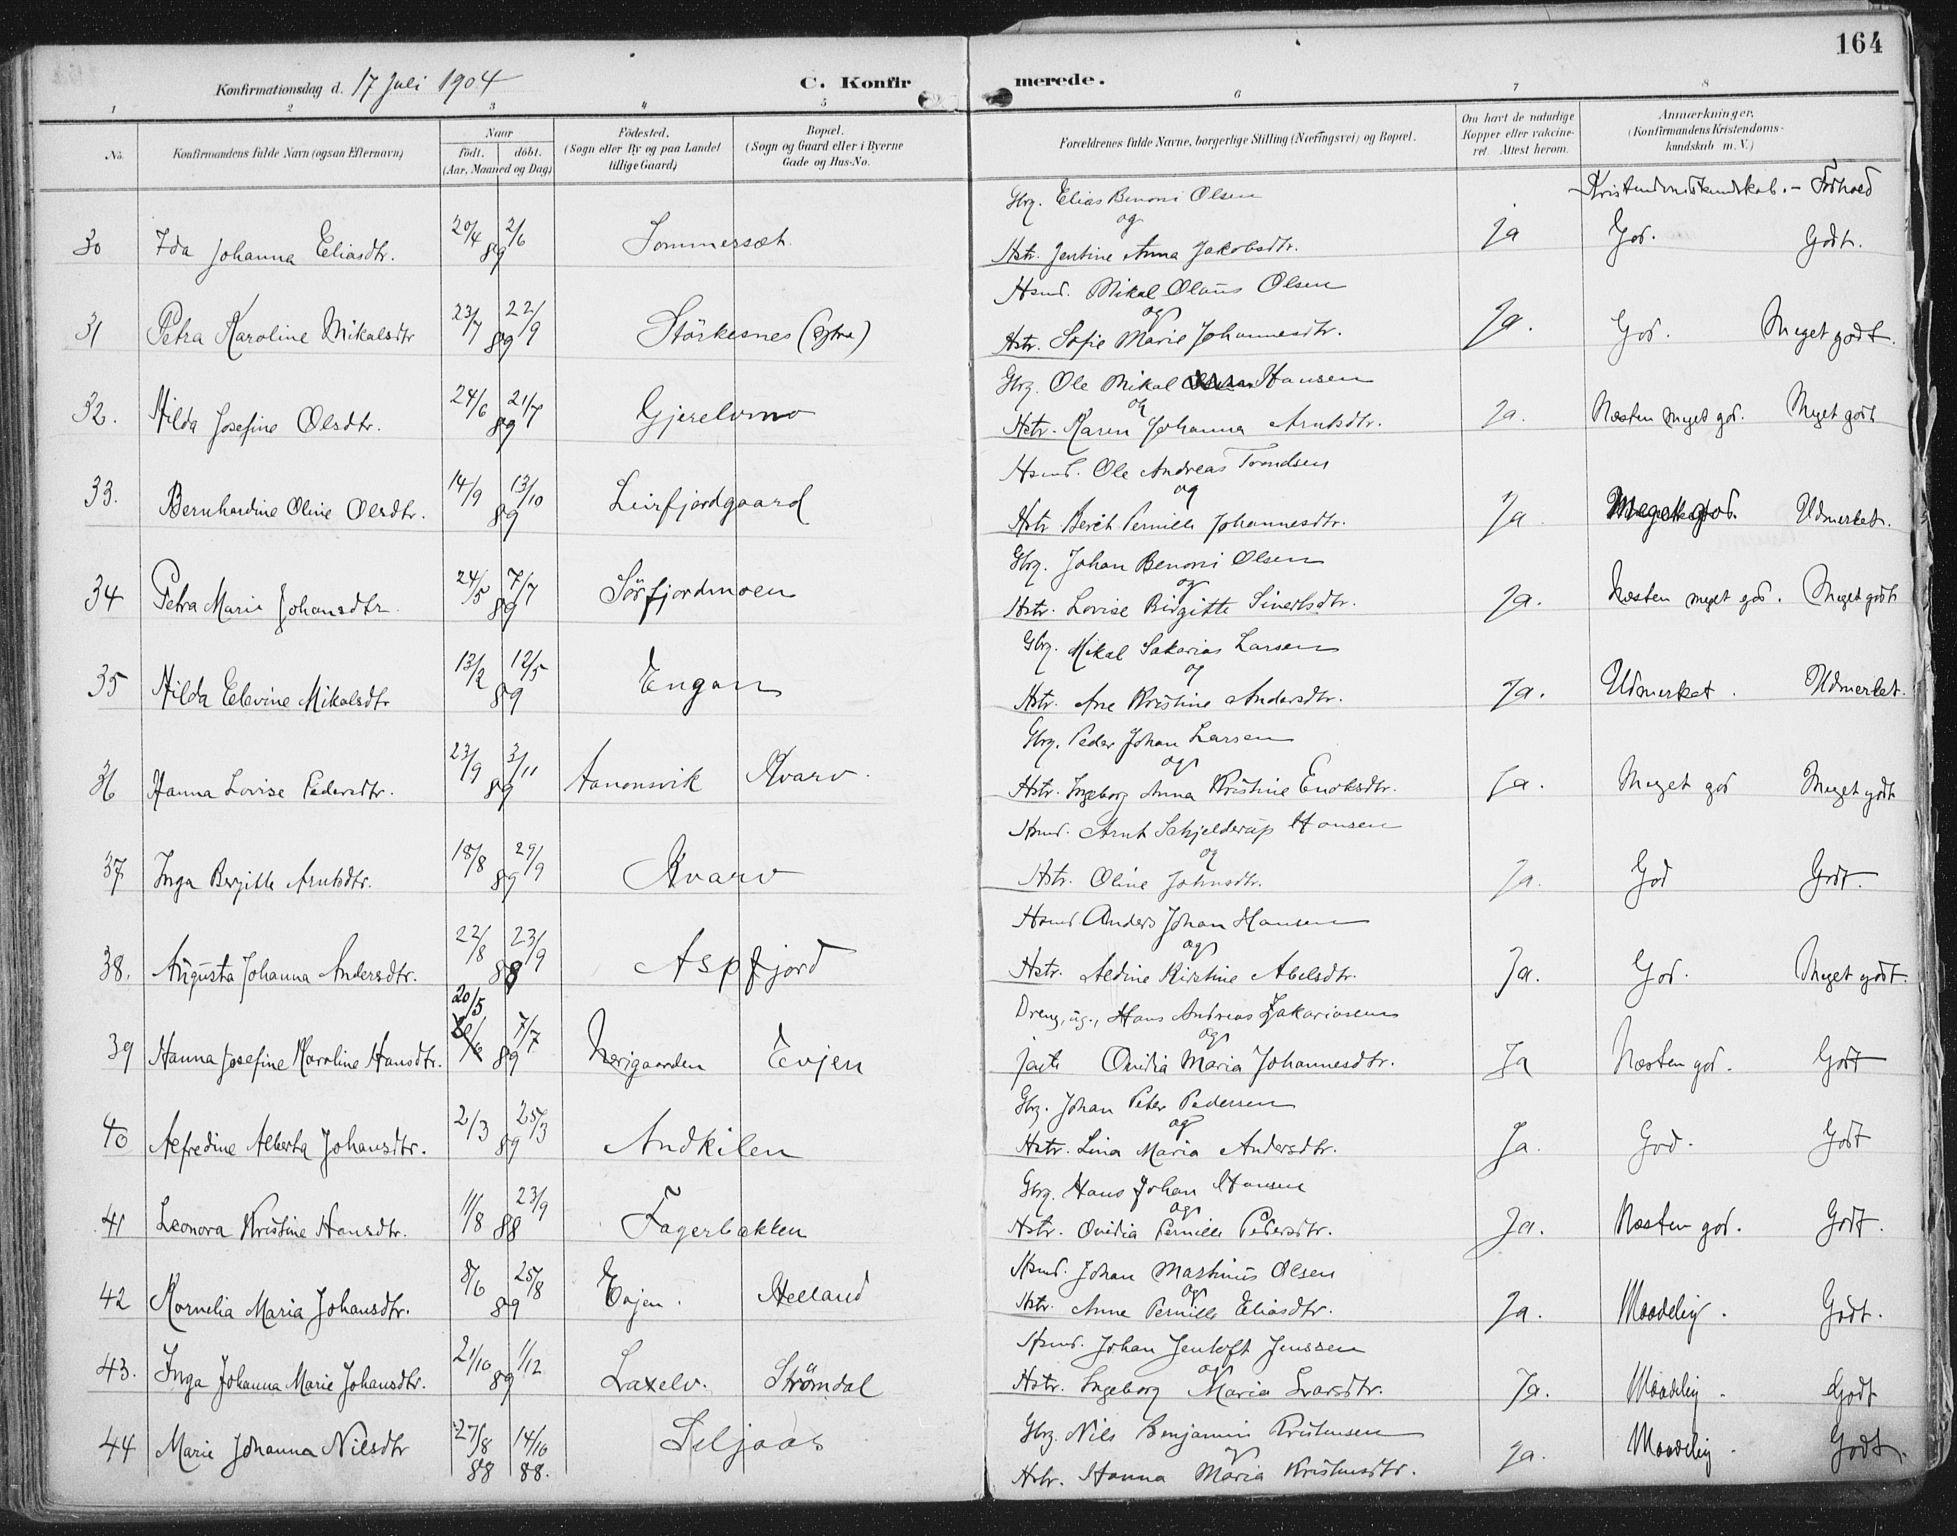 164
Konfirmationsdag d. 17 Juli 1904 C. Konfirmerede.
1 2 3 4 5 6 7 8
No. Konfirmandens fulde Navn (ogsaa Efternavn) Naar født. døbt. (Aar, Maaned og Dag) Fødested. (Sogn eller By og paa Landet tillige Gaard) Bopæl. (Sogn og Gaard eller i Byerne Gade og Hus-No. Forældrenes fulde Navne, borgerlige Stilling (Næringsvei) og Bopæl. Om havt de naturlige Kopper eller vakcineret. Attest herom. Anmærkninger. (Konfirmandens Kristendomskundskab m. V.)
Kristendomskundskab. - Forhold
Gbrg. Elias Benoni Olsen
og
30 Ida Johanna Eliasdtr. 20/4 2/6 89 Sommersæt Hstr. Jentine Anna Jakobsdtr. ja God. Godt.
Hsmd. Mikal Olaus Olsen
og
31 Petra Karoline Mikalsdtr 23/7 22/9 89 Störkesnes (Ytre) Hstr. Sofie Marie Johannesdtr. Ja. God. Meget godt.
Gbrg. Ole Mikal Hansen
og
32. Hilda Josefine Olsdtr. 24/6 21/7 89 Gjerelvmo Hstr. Karen Johanna Arntsdtr. Ja. Næsten meget god. Meget godt
Hsmd. Ole Andreas Trondsen
og
33. Bernhardine Oline Olsdtr. 14/9 13/10 89 Leirfjordgaard Hstr Berit Pernille Johannesdtr. Ja. Meget god. Udmerket.
Gbrg. Johan Benoni Olsen
og
34 Petra Marie Johansdtr. 24/5 7/7 89 Sörfjordmoen Hstr. Lovise Birgitte Sivertsdtr. Ja. Næsten meget god. Meget godt
Gbrg. Mikal Sakarias Larsen
og
35 Hilda Elevine Mikalsdtr 13/2 12/5 89 Engan Hstr. Ane Kristine Andersdtr. Ja. Udmerket. Udmerket.
Gbrg. Peder Johan Larsen
og
36 Hanna Lovise Pedersdtr. 23/9 3/11 89 Aanonsvik Kvarv. Hstr. Ingeborg Anna Kristine Enoksdtr. Ja. Meget god Meget godt
Hsmd. Arnt Schjelderup Hansen
og
37 Inga Bergitte Arntsdtr. 18/8 29/9 89 Kvarv Hstr. Oline Johnsdtr. Ja. God Godt.
Hsmd Anders Johan Hansen
og
38. Augusta Johanna Andersdtr. 22/8 23/9 88 Aspfjord Hstr. Aldine Kirstine Abelsdtr. Ja. God. Meget godt.
20/5 Dreng, ug., Hans Andreas Zakariasen
og
39 Hanna Josefine Karoline Hansdtr. 7/7 89 Nerigaarden Evjen Ovidia Maria Johannesdtr. Ja Næsten god. Godt
Gbrg. Johan Peter Pedersen
og
40 Alfredine Alberta Johansdtr. 2/3 25/3 89 Andkilen Hstr. Lina Maria Andersdtr. Ja. God. Godt
Gbrg. Hans Johan Hansen
og
41 Leonora Kristine Hansdtr. 11/8 23/9 88 Fagerbakken Hstr. Ovidia Pernille Pedersdtr. Ja. Næsten god. Godt.
Hsmd. Johan Martinus Olsen
og
42 Kornelia Maria Johansdtr. 8/6 25/8 89 Evjen. Helland Hstr. Anne Pernille Eliasdtr. Ja. Maadelig. Godt.
Hsmd. Johan Jentoft Jenssen
og
43. Inga Johanna Marie Johansdtr. 21/10 1/12 89 Laxelv. Strömdal Hstr. Ingeborg Maria Larsdtr. Ja. Maadelig. Godt
Gbrg. Nils Benjamin Kristensen
og
44 Marie Johanna Nilsdtr 27/8 88 14/10 88. Seljaas Hstr. Hanna Maria Kristensdtr. Ja. Maadelig. Godt.